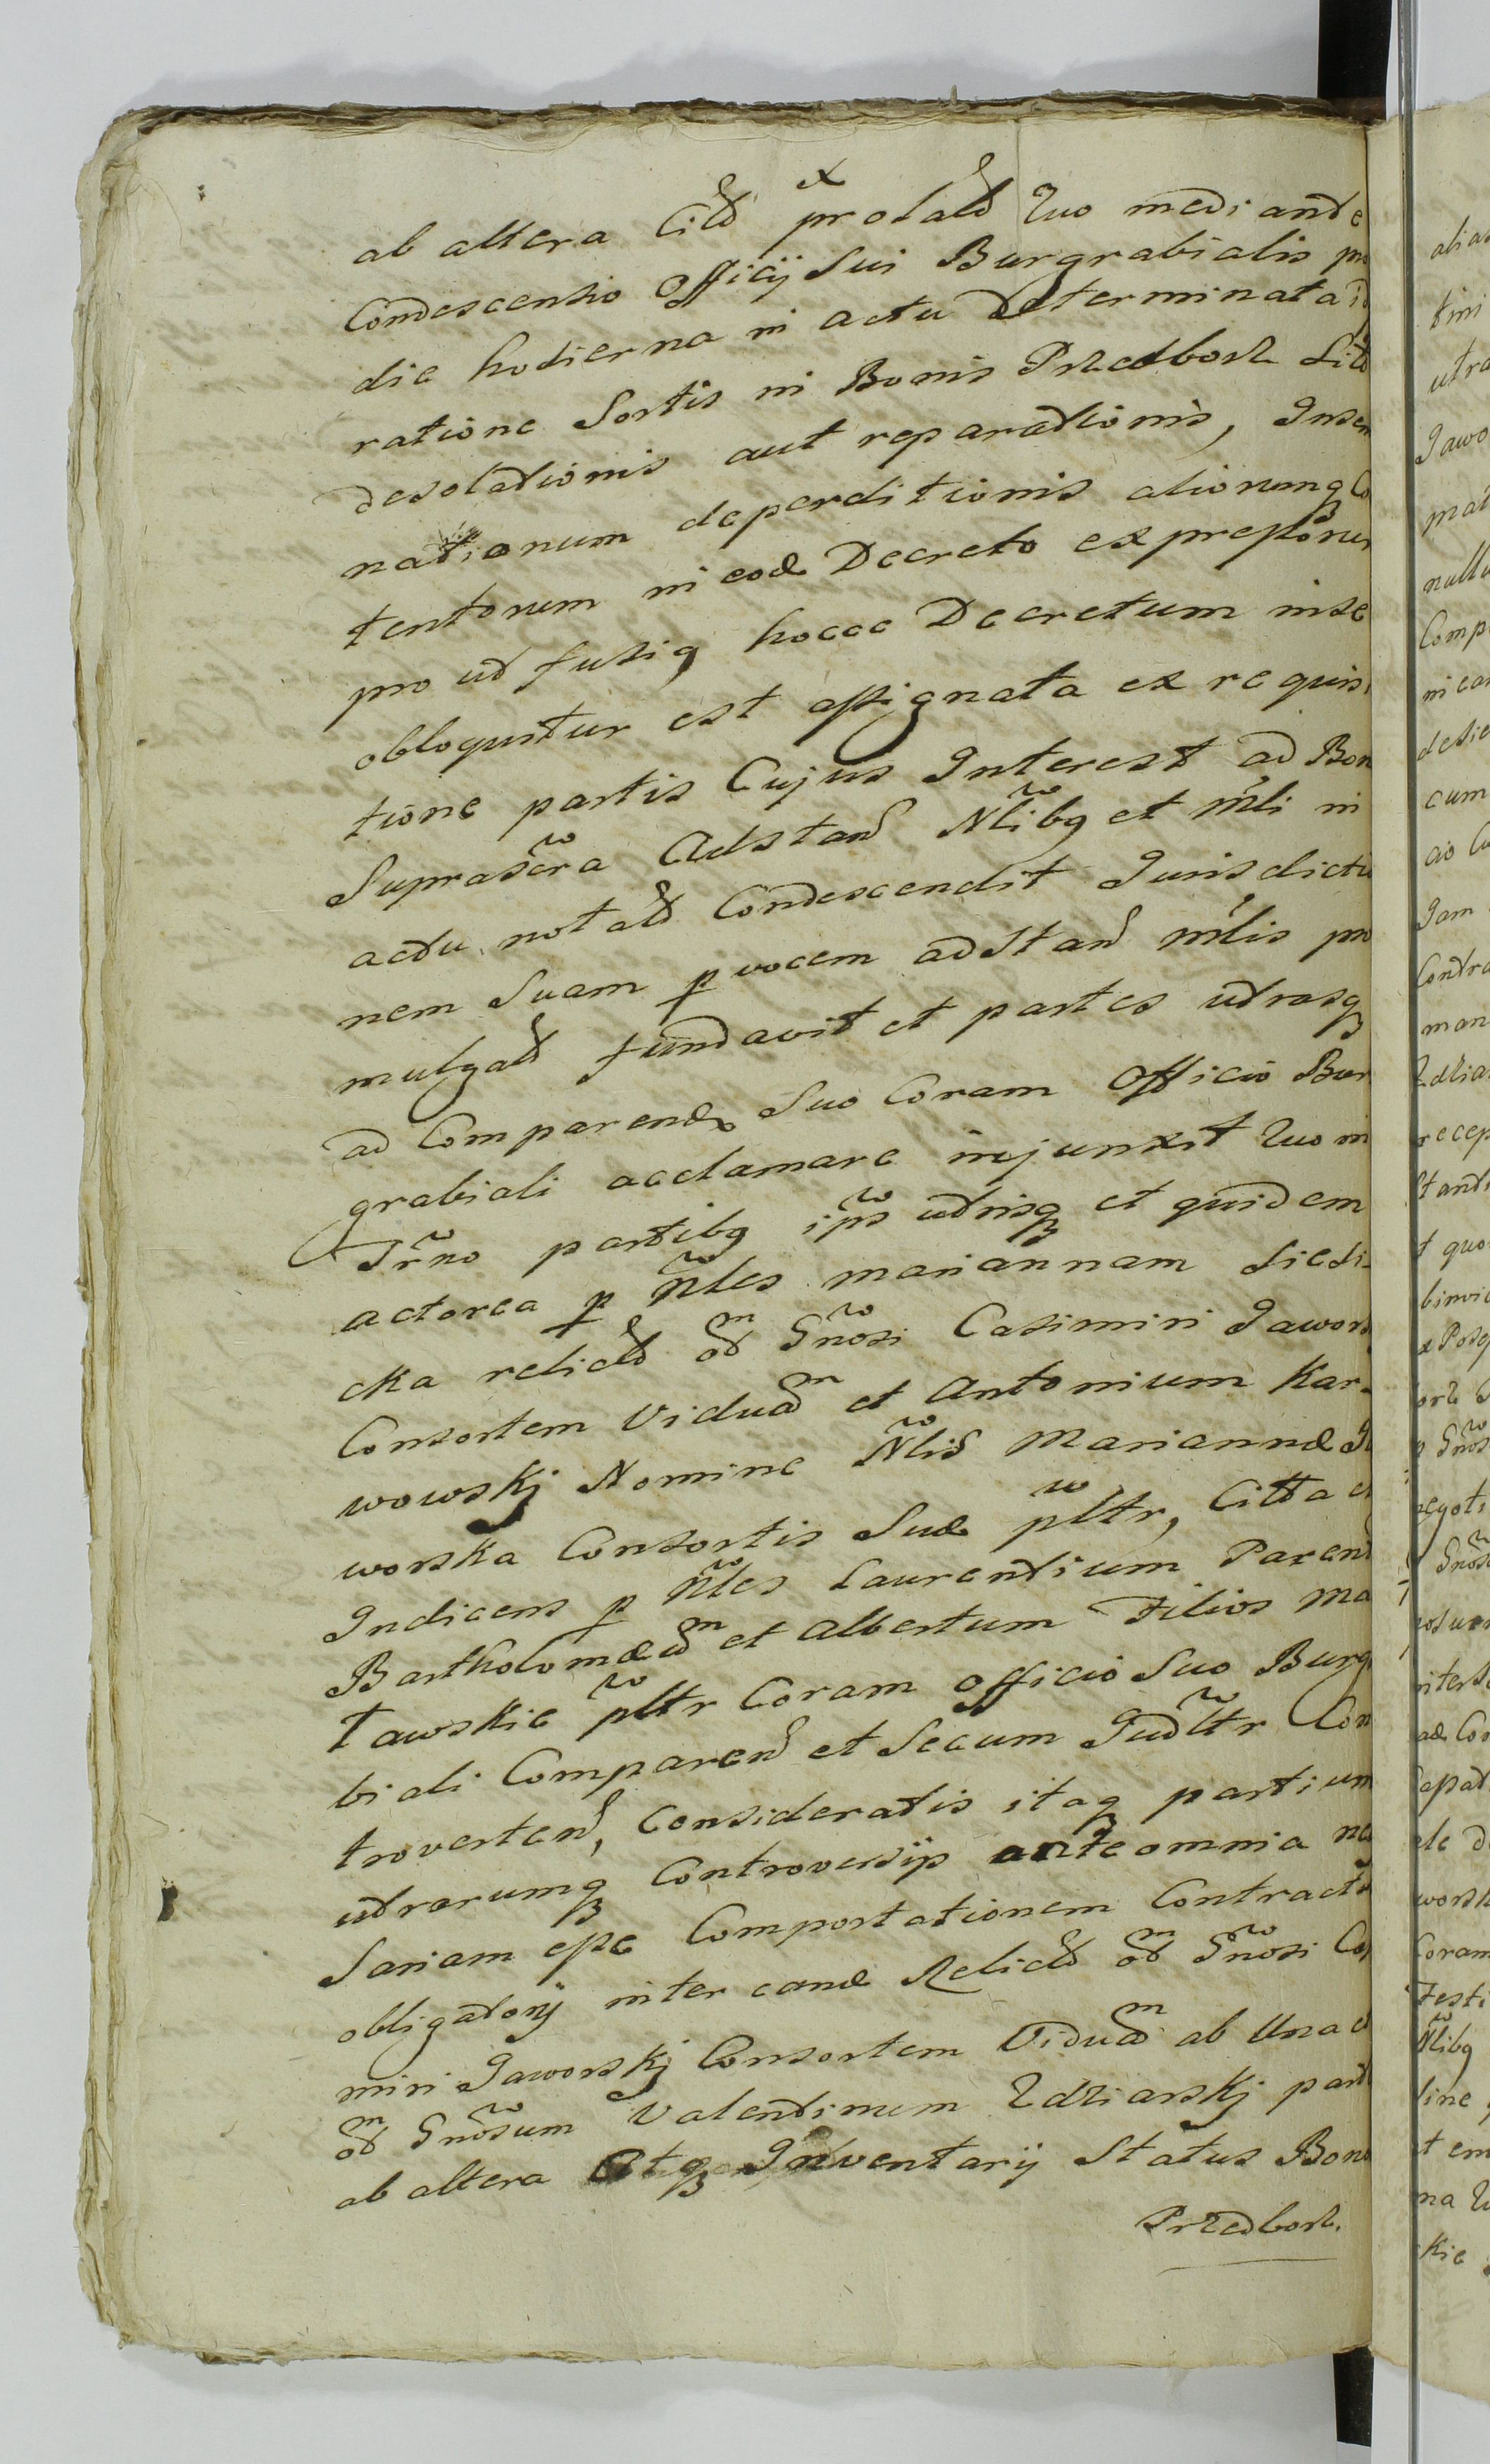 ab altera Citt ex prolatt quo mediante
Condescensio Officij Sui Burgrabialis pro
die hodierna in actu determinata
ratione Sortis in Bonis Przedborz Sitt
desolationis aut reparationis, Inse
nationum deperditionis aliorumq Co
tentorum in eod Decreto expressorum
pro ut fusiq hocce Decretum in se
obloquitur est assignata ex requisi
tione partis Cujus Interest ad Bon
Suprascra Adstand Nlibq et Mli in
actu notatt Condescendit Jurisdictio
nem Suam p vocem adstand Mlis pro
mulgatt fundavit et partes utrasq
ad Comparend Suo Coram Officio Bur
grabiali acclamare injunxit quo in
Trno partibq ips utrisq et quidem
actorea p Nles mariannam Siedi-
cka relictt od Gnosi Casimiri Jawors
Consortem Viduam et Antonium Kar-
wowskj Nomine Nlis Mariannæ Ja
worska Consortis Suæ pltr, Citta et
Indicens p Nles Laurentium Paren
Bartholomæum et Albertum Filios Ma
tawskie pltr Coram Officio Suo Burg
biali Comparend et Secum Judltr Con
trovertend, Consideratis itaq partium
utrarumq Controversijs ante omnia ne
sariam esse Comportationem Contractus
obligatorij inter eand Relictt od Gnosi Casi
miri Jaworskj Consortem Viduam ab Una et
od Gnosum Valentinum Zdziarskj part
ab altera Atq Inventarij Status Bono
Przedborz.
alias
tini
utra
Jawo
mat
nullu
Comp
in ea
desie
cum
Jam
Contra
man
Zdzia
recep
t quo
Gnos
negoti
Coram
Testi
Nlibq
line
tem
kie